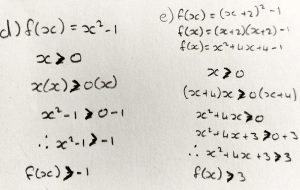 d) f(x) = x²-1
x ⩾ 0
x(x) ⩾ 0(x)
x²-1 ⩾ 0-1
∴ x²-1 ⩾ -1
f(x) ⩾ -1
e) f(x) = (x+2)² -1
f(x) = (x+2)(x+2) -1
f(x) = x²+4x+4-1
x ⩾ 0
(x+4)x ⩾ 0(x+4)
x²+4x ⩾ 0
x²+4x+3 ⩾ 0+3
∴ x²+4x+3 ⩾ 3
f(x) ⩾ 3